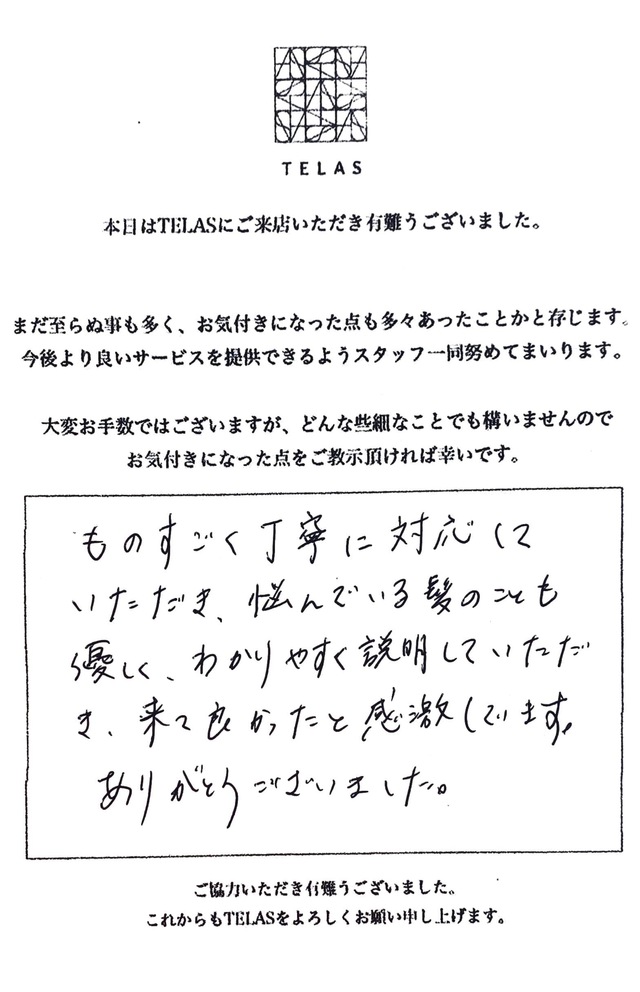 TELAS
本日はTELASにご来店いただき有難うございました。
まだ至らぬ事も多く、お気付きになった点も多々あったことかと存じます。
今後より良いサービスを提供できるようスタッフ一同努めてまいります。
大変お手数ではございますが、どんな些細なことでも構いませんので
お気付きになった点をご教示頂ければ幸いです。
ものすごく丁寧に対応して
いただき、悩んでいる髪のことも
優しく、わかりやすく説明していただ
き、来て良かったと感激しています。
ありがとうございました。
ご協力いただき有難うございました。
これからもTELASをよろしくお願い申し上げます。